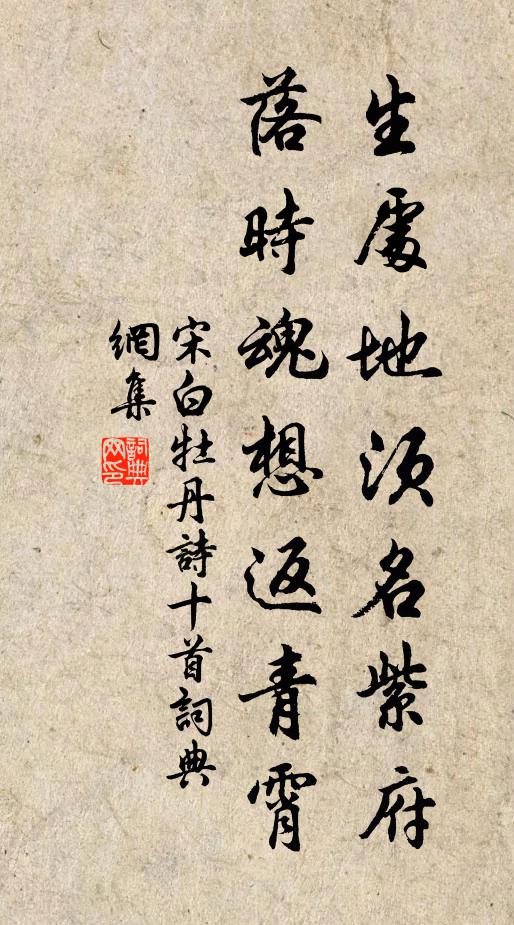 生處地須名紫府
落時魂想返青霄
宋白牡丹詩十首詞典
網集
詞典
网印